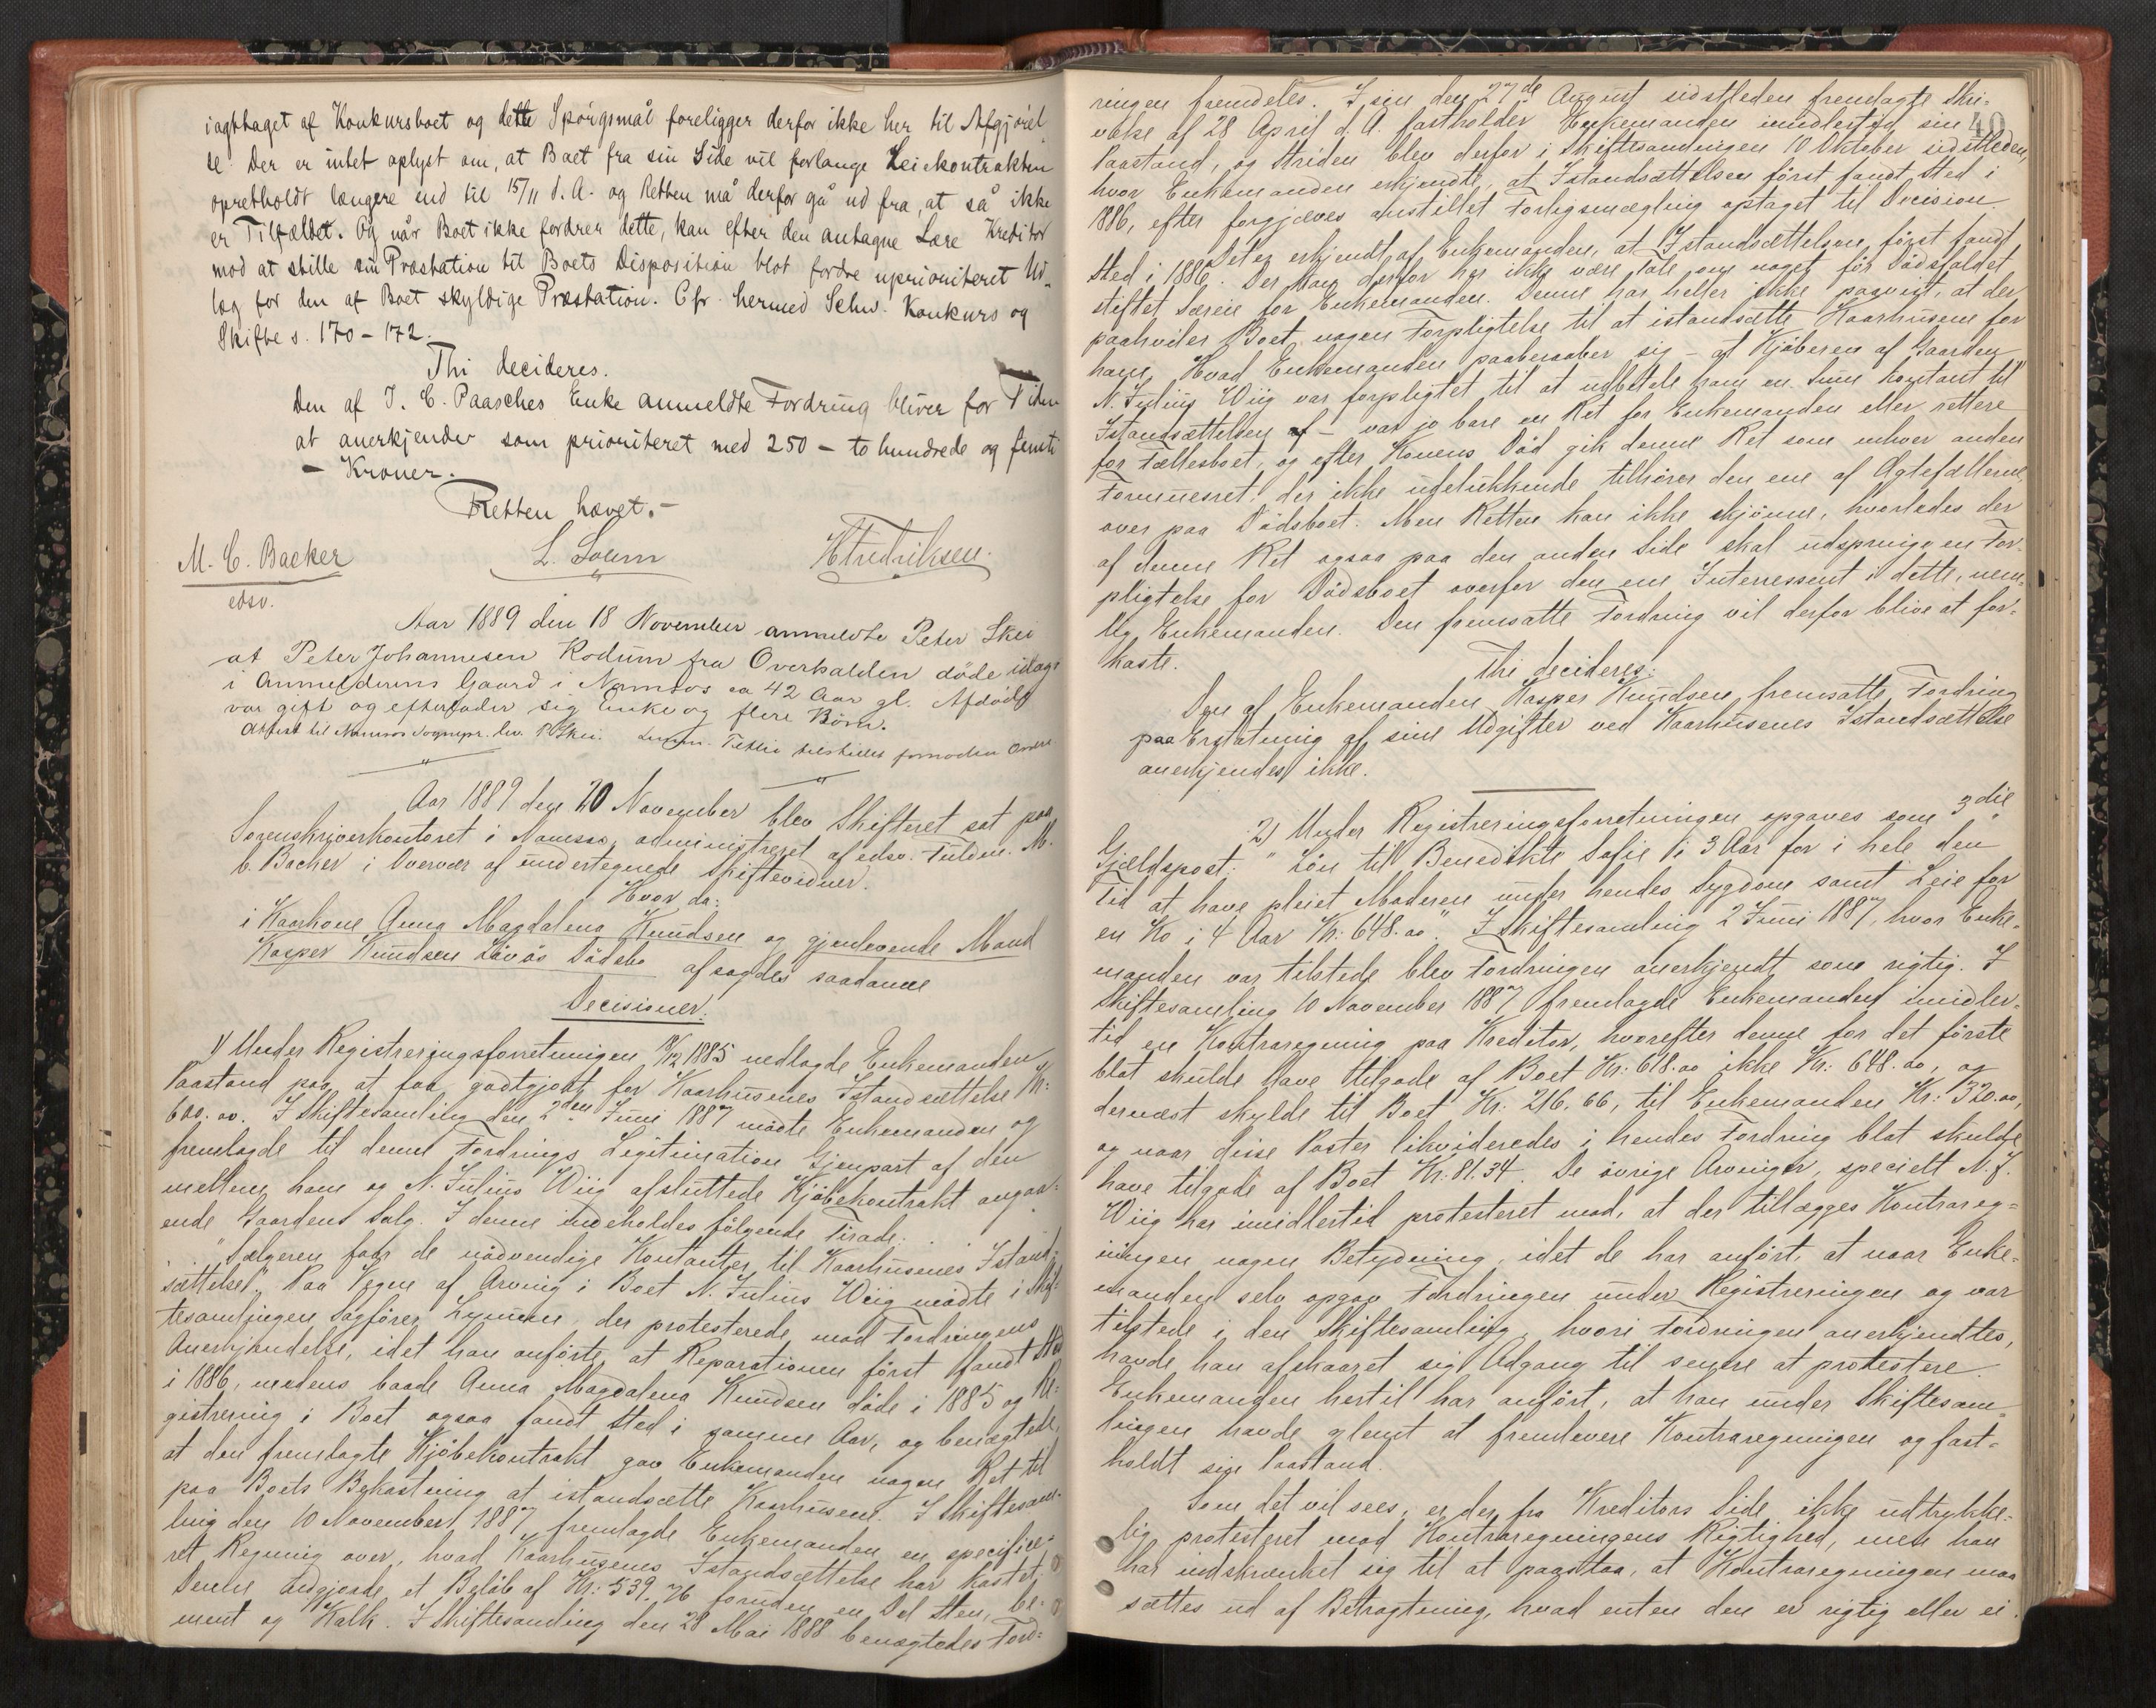 iagttaget af Konkursboet og dette Spörgsmål foreligger derfor ikke her til Afgjörel
se. Der er intet oplyst om, at Boet fra sin Side vil forlange Leiekontrakten
opretholdt længere end til 15/11 d. A. og Retten må derfor gå ud fra, at så ikke
er Tilfældet. Og når Boet ikke fordrer dette, kan efter den antagne Lære Kreditor
mod at stille sin Præstation til Boets Disposition blot fordre uprioriteret Ud-
læg for den af Boet skyldige Præstation. Cfr. hermed Schw. Konkurs og
Skifte s. 170-172.
Thi decideres.
Den af J. C. Paasches Enke anmeldte Fordring bliver for Tiden
at anerkjende som prioriteret med 250 - to hundrede og femti
- Kroner.
Retten hævet.-
M. C. Backer
L. Solem
H Fredriksen.
edsv.
Aar 1889 den 18 November anmeldte Peter Skei
at Peter Johannesen Rodum fra Overhalden döde idag
i Anmelderens Gaard i Namsos ca 42 Aar gl. Afdöde
var gift og efterlader sig Enke og flere Börn.
Attest til Namsos Sognepr. lev. P Skei.
Aar 1889 den 20 November blev Skifteret sat paa
Sorenskriverkontoret i Namsos, administreret af edsv. Fuldm. M.
C. Backer i Overvær af undertegnede Skiftevidner.
Hvor da:
i Kaarkone Anna Magdalena Knudsen og gjenlevende Mand
Kasper Knudsen Lövås Dödsbo afsagdes saadanne
Decisioner:
1) Under Registreringsforretningen /12 1885 nedlagde Enkemanden
Paastand paa at faa godtgjort for Kaarhusenes Istandsættelse Kr:
600.00. I Skiftesamling den 2den Juni 1887 mödte Enkemanden og
fremlagde til denne Fordrings Legitimation Gjenpart af den
mellem ham og N. Julius Wiig afsluttede Kjöbekontrakt angaa-
ende Gaardens Salg. I denne indeholdes fölgende Tirade:
"Sælgeren faar de nödvendige Kontanter til Kaarhusenes Istand-
sættelse". Paa Vegne af Arving i Boet N. Julius Wiig mödte i Skif-
tesamlingen Sagförer Lyman, der protesterede mod Fordringens
Anerkjendelse, idet han anförte at Reparationen först fandt Sted
i 1886, medens baade Anna Magdalena Knudsen döde i 1885 og Re-
gistrering i Boet ogsaa fandt Sted i samme Aar, og benægtede,
at den fremlagte Kjöbekontrakt gav Enkemanden nogen Ret til
paa Boets Bekostning at istandsætte Kaarhusene. I Skiftesam-
ling den 10 November 1887 fremlagde Enkemanden en specifice-
ret Regning over, hvad Kaarhusenes Istandsættelse har kostet.
Denne udgjorde et Belöb af Kr: 539.76 foruden en Del Sten, Ce-
ment og Kalk. I Skiftesamling den 28 Mai 1888 benægtedes Ford-
40
ringen fremdeles. I sin den 27de August sidstleden fremlagte Skri-
velse af 28 April d. A. fastholder Enkemanden imidlertid sin
Paastand, og Striden blev derfor i Skiftesamlingen 10 Oktober sidstleden,
hvor Enkemanden erkjendte, at Istandsættelsen först fandt Sted i
1886, efter forgjæves anstillet Forligsmægling optaget til Decision.
Det er erkjendt af Enkemanden, at Istandsættelsen först fandt
Sted i 1886. Der kan derfor her ikke være Tale om noget för Dödsfaldet
stiftet Særeie for Enkemanden. Denne har heller ikke paavist, at der
paahviler Boet nogen Forpligtelse til at istandsætte Kaarhusene for
ham. Hvad Enkemanden paaberaaber sig - at Kjöberen af Gaarden
N. Julius Wiig var forpligtet til at udbetale ham en Sum kontant til
Istandsættelsen af - var jo bare en Ret for Enkemanden eller rettere
for Fællesboet, og efter Konens Död gik denne Ret som enhver anden
Formuesret, der ikke udelukkende tilhörer den ene af Ægtefællerne
over paa Dödsboet. Men Retten kan ikke skjönne, hvorledes der
af denne Ret ogsaa paa den anden Side skal udspringe en For-
pligtelse for Dödsboet overfor den ene Interressent i dette, nem-
lig Enkemanden. Den fremsatte Fordring vil derfor blive at for-
kaste.
Thi decideres:
Den af Enkemanden Kasper Knudsen fremsatte Fordring
paa Erstatning af sine Udgifter ved Kaarhusenes Istandsættelse
anerkjendes ikke.
2) Under Registreringsforretningen opgaves som 3die
Gjældspost: "Lön til Benedikte Sofie i 3 Aar for i hele den
Tid at have pleiet Moderen under hendes Sygdom samt Leie for
en Ko i 4 Aar Kr: 648.00". I Skiftesamling 2 Juni 1887, hvor Enke-
manden var tilstede blev Fordringen anerkjendt som rigtig. I
Skiftesamling 10 November 1887 fremlagde Enkemanden imidler-
tid en Kontraregning paa Kreditor, hvorefter denne for det förste
blot skulde have tilgode af Boet Kr: 618.00 ikke Kr: 648.00, og
dernæst skylde til Boet Kr: 216.66, til Enkemanden Kr: 320.00,
og naar disse Poster likvideredes i hendes Fordring blot skulde
have tilgode af Boet Kr. 81.34. De övrige Arvinger, specielt N. J.
Wiig har imidlertid protesteret mod, at der tillægges Kontrareg-
ningen nogen Betydning, idet de har anfört, at naar Enke-
manden selv opgav Fordringen under Registreringen og var
tilstede i den Skiftesamling hvori Fordringen anerkjendtes,
havde han afskaaret sig Adgang til senere at protestere.
Enkemanden hertil har anfört, at han under Skiftesam-
lingen havde glemt at fremlevere Kontraregningen og fast-
holdt sin Paastand.
Som det vil sees, er der fra Kreditors Side ikke udtrykke-
lig protesteret mod Kontraregningens Rigtighed, men han
har indskrænket sig til at paastaa, at Kontraregningen maa
sættes ud af Betragtning, hvad enten den er rigtig eller ei.